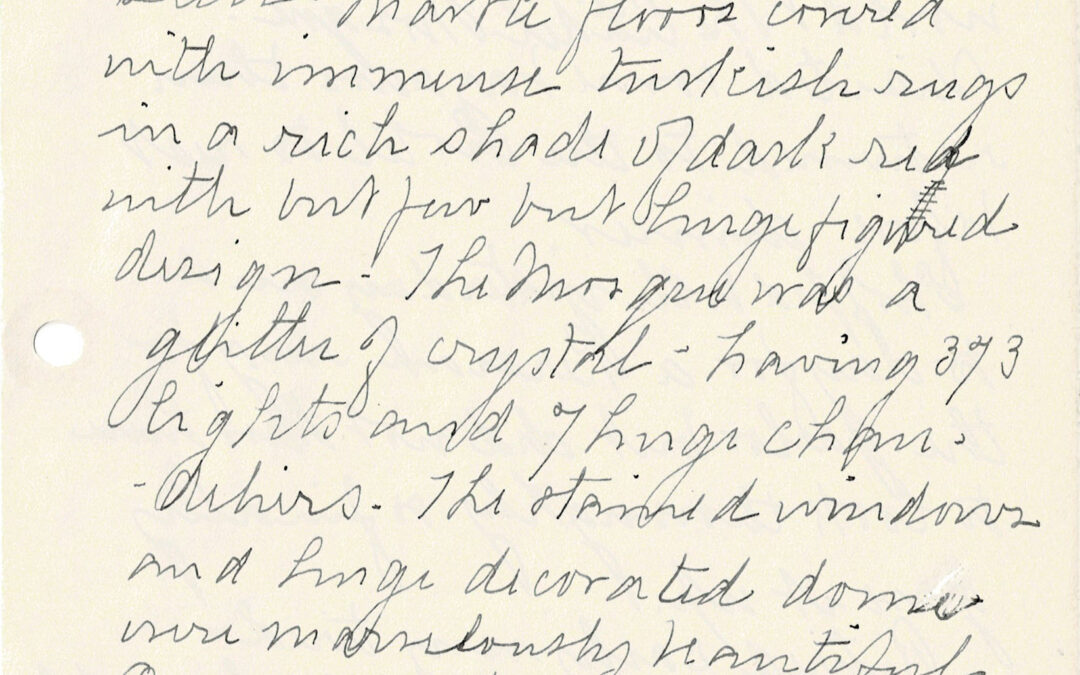 marble floors covered
with immense turkish rugs
in a rich shade of dark red
with but few but huge figured
design - The Mosque was a
glitter of crystal - having 373
lights and 7 huge chan-
-deliers. The stained windows
and huge decorated dome
were marvelously beautiful